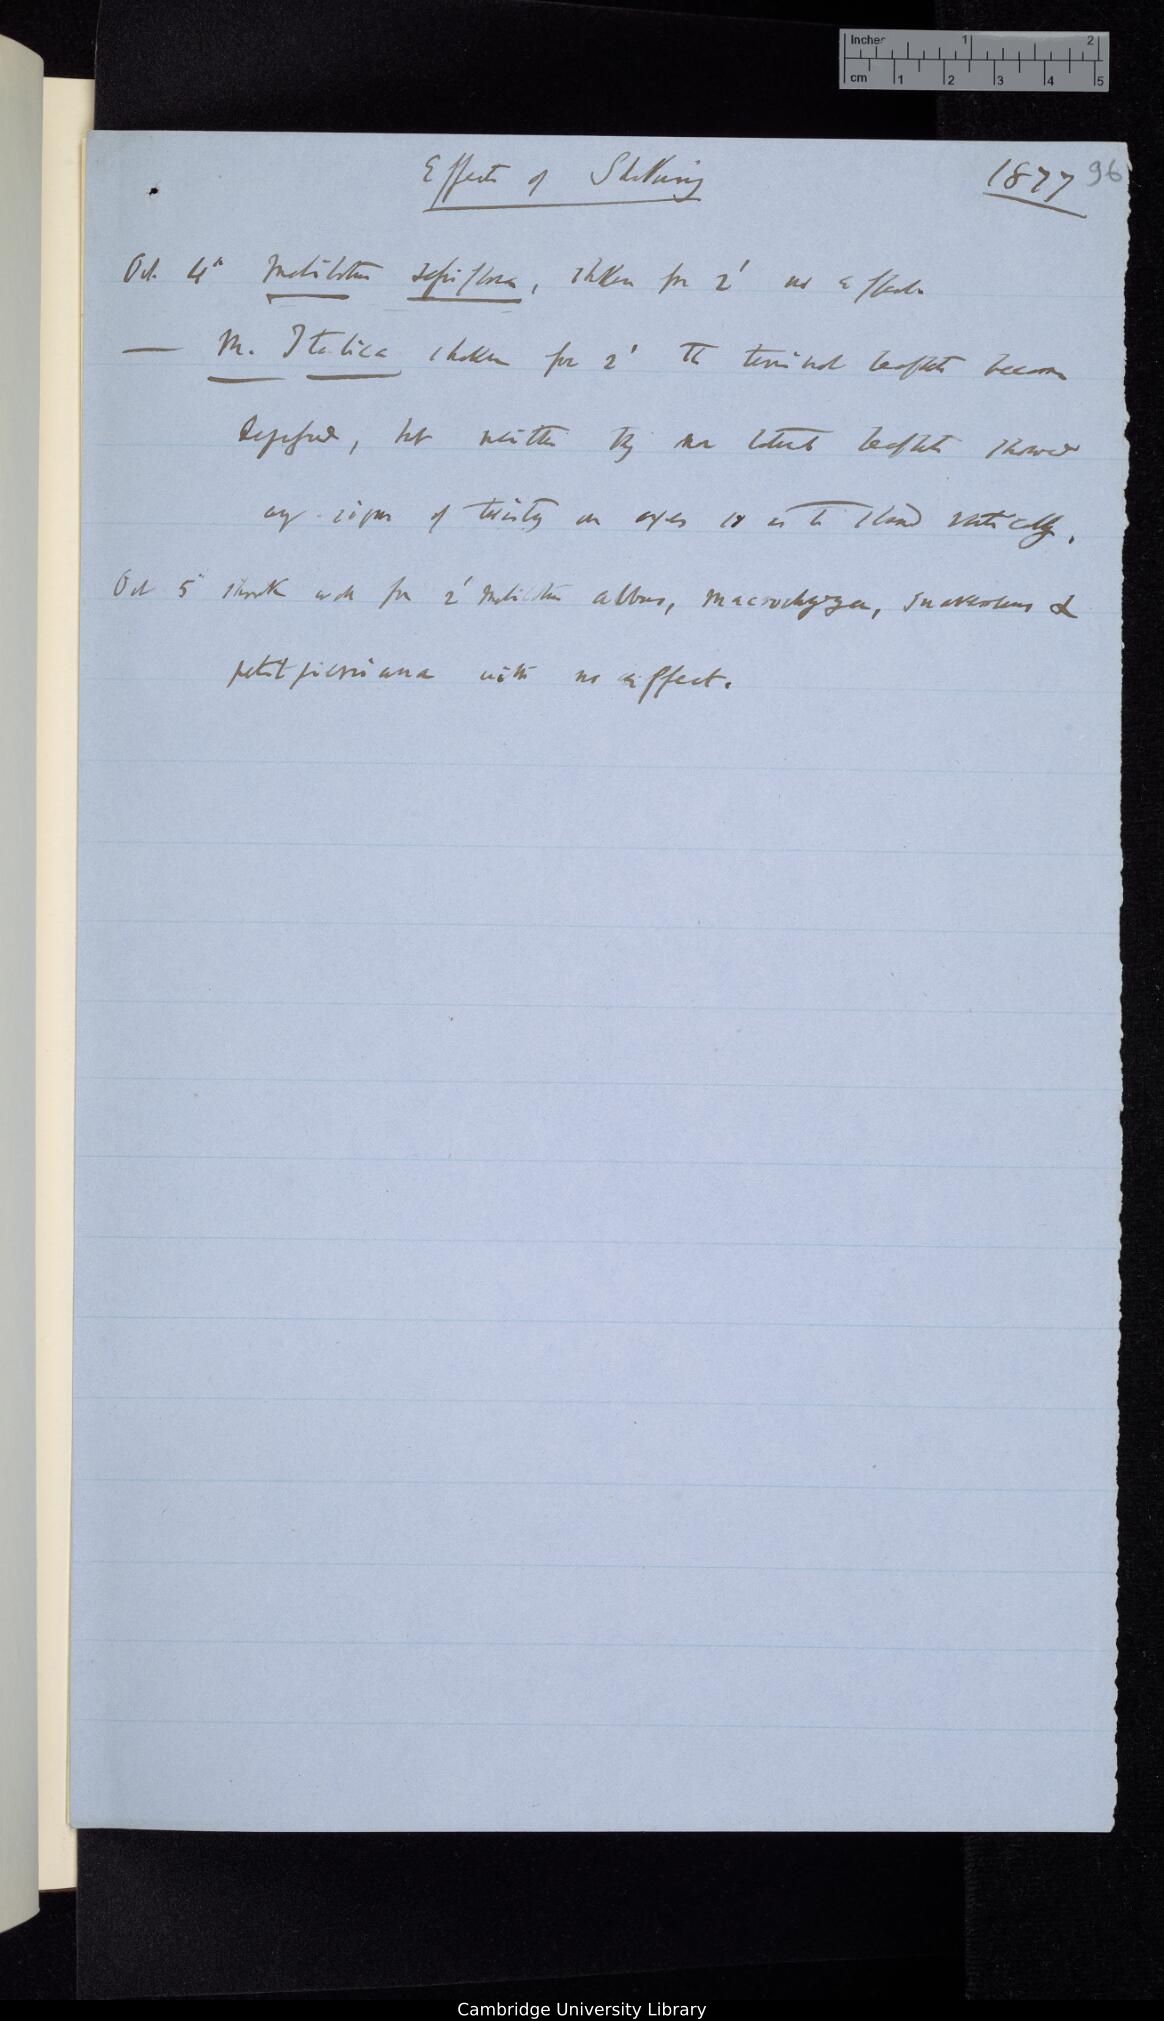 Effects of Shaking 1877 96
Oct. 4th Melilotus , shaken for 2' no effect.
— M. Italica shaken for 2' The terminal leaflets became
depressed, but neither they nor lateral leaflets showed
any signs of twisting on axes so as to stand vertically.
Oct 5th shook each for 2' Melilotus albus, macrorhyza, suaveolens &
petitpierreiana with no effect.
Inches 1 2
cm 1 2 3 4 5
Cambridge University Library